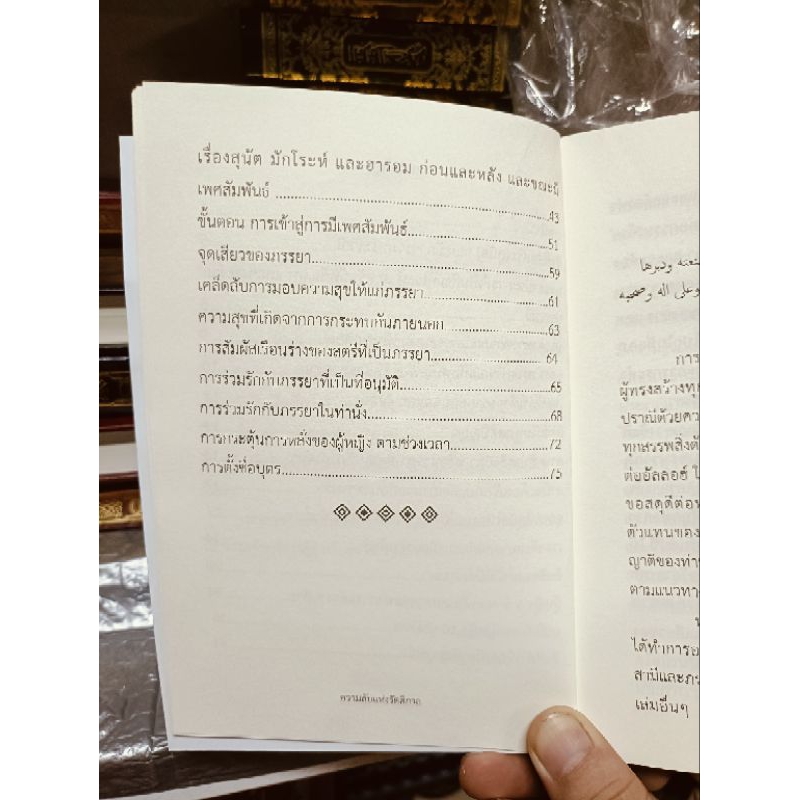 เรื่องสุนัต มักโระห์ และฮารอม ก่อนและหลัง และขณะมี
เพศสัมพันธ์ ...........................................................43
ขั้นตอน การเข้าสู่การมีเพศสัมพันธ์...............................51
จุดเสียวของภรรยา...................................................59
เคล็ดลับการมอบความสุขให้แก่ภรรยา..........................61
ความสุขที่เกิดจากการกระทบกันภายนอก ....................63
การสัมผัสเรือนร่างของสตรีที่เป็นภรรยา....................... 64
การร่วมรักกับภรรยาที่เป็นที่อนุมัติ................................65
การร่วมรักกับภรรยาในท่านั่ง......................................68
การกระตุ้นการหลั่งของผู้หญิง ตามช่วงเวลา...................72
การตั้งชื่อบุตร..........................................................75
ความลับแห่งรัตติกาล
وعلى اله وصحبه
การ
ผู้ทรงสร้างทุก
ปราณีด้วยคว
ทุกสรรพสิ่งดั
ต่ออัลลอฮ์ ใ
ขอสดุดีต่อน
ตัวแทนของ
ญาติของท่า
ตามแนวทา
ได้ทำการอ
สามีและภร
เล่มอื่นๆ